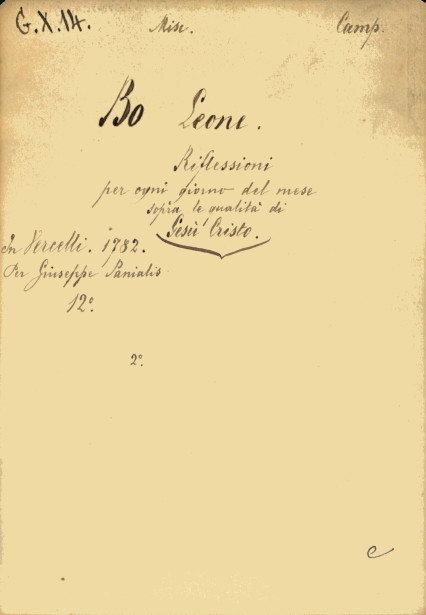 G.X.14. Misc. Camp.
Bo Leone.
Riflessioni
per ogni giorno del mese
sopra le qualità di
Gesù Cristo.
In Vercelli. 1782.
Per Giuseppe Panialis
12°.
2°.
c